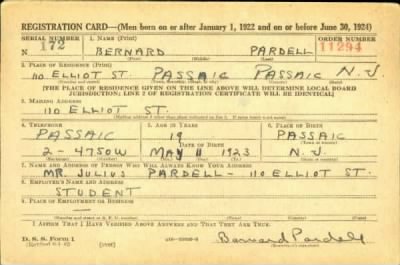 REGISTRATION CARD—(Men born on or after January 1, 1922 and on or before June 30, 1924)
SERIAL NUMBER 1. NAME (Print) ORDER NUMBER
N 172 BERNARD PARDELL 11294
(First) (Middle) (Last)
2. PLACE OF RESIDENCE (Print)
110 ELLIOT ST. PASSAIC PASSAIC N.J.
(Number and street) (Town, township, village, or city) (County) (State)
[THE PLACE OF RESIDENCE GIVEN ON THE LINE ABOVE WILL DETERMINE LOCAL BOARD
JURISDICTION; LINE 2 OF REGISTRATION CERTIFICATE WILL BE IDENTICAL]
3. MAILING ADDRESS
110 ELLIOT ST.
[Mailing address if other than place indicated on line 2. If same insert word same]
4. TELEPHONE 5. AGE IN YEARS 6. PLACE OF BIRTH
PASSAIC 19 PASSAIC
DATE OF BIRTH (Town or county)
2-4750W MAY 11 1923 N.J.
(Exchange) (Number) (Mo.) (Day) (Yr.) (State or country)
7. NAME AND ADDRESS OF PERSON WHO WILL ALWAYS KNOW YOUR ADDRESS
MR. JULIUS PARDELL - 110 ELLIOT ST.
8. EMPLOYER'S NAME AND ADDRESS
STUDENT
9. PLACE OF EMPLOYMENT OR BUSINESS
(Number and street or R. F. D. number) (Town) (County) (State)
I AFFIRM THAT I HAVE VERIFIED ABOVE ANSWERS AND THAT THEY ARE TRUE.
D. S. S. Form 1 (over) Bernard Pardell
(Registrant's signature)